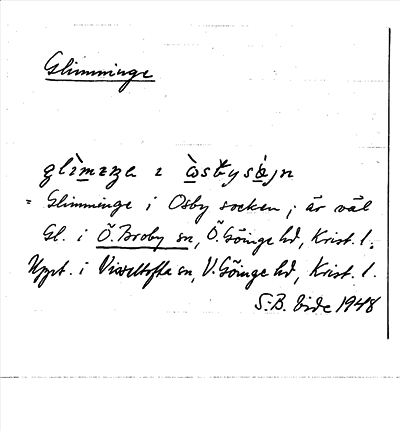 Glimminge
glìmiŋa i òsbysòjn
= Glimminge i Osby socken; är väl
Gl. i Ö. Broby sn, Ö. Göinge hd, Krist. l.
Uppt. i Visseltofta sn, V. Göinge hd, Krist. l.
S.-B. 1948